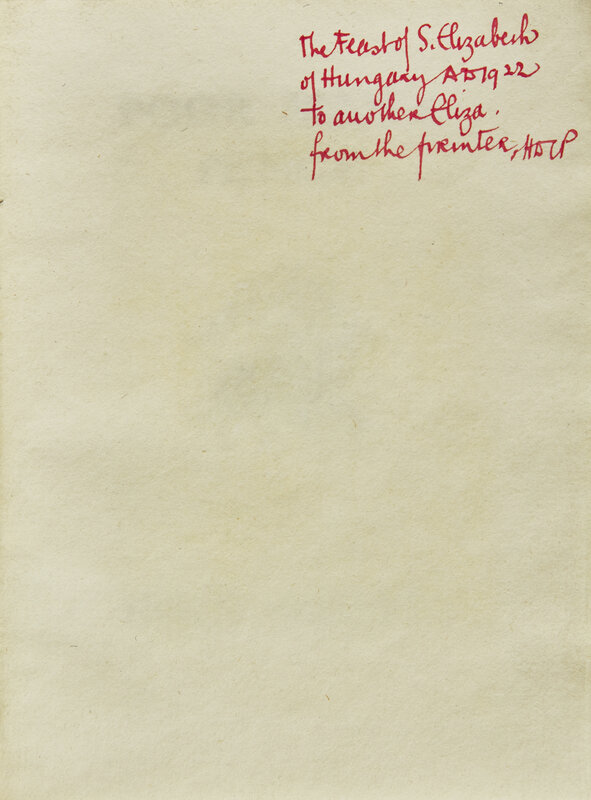 The Feast of S. Elizabeth
of Hungary AD 1922
to another Eliza.
from the printer, HDCP